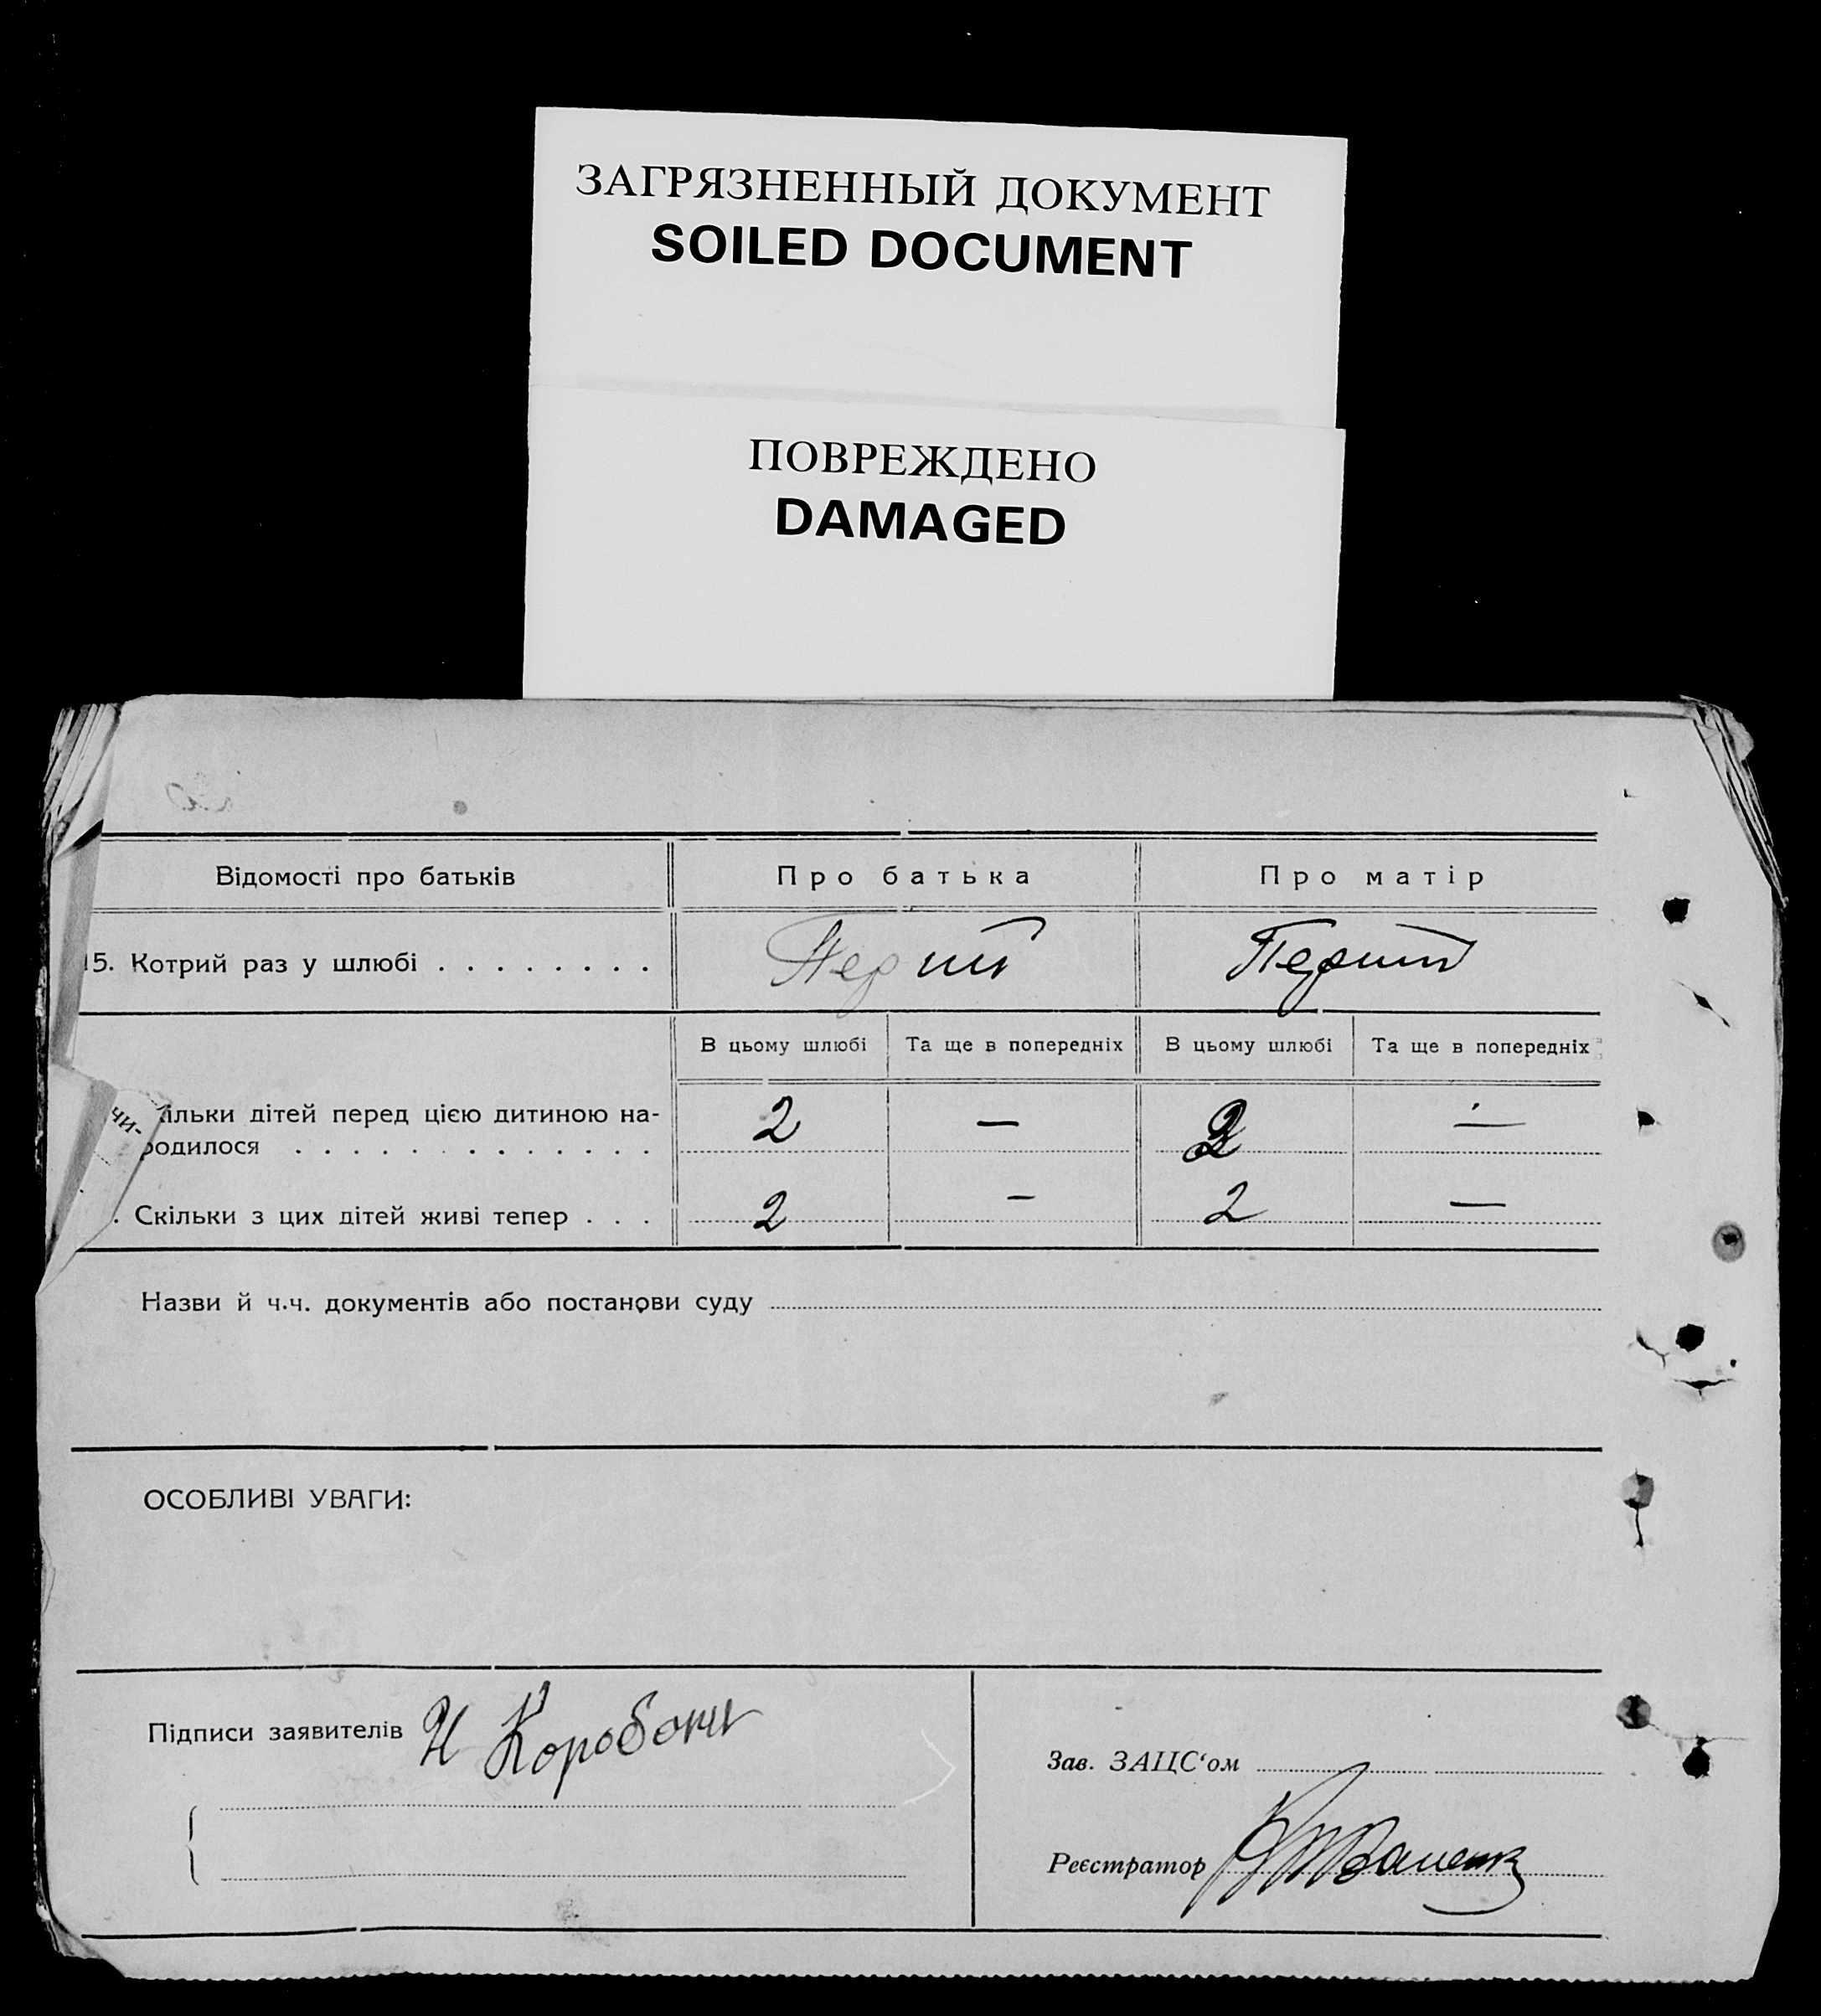 ЗАГРЯЗНЕННЫЙ ДОКУМЕНТ
SOILED DOCUMENT
ПОВРЕЖДЕНО
DAMAGED
Відомості про батьків Про батька Про матір
15. Котрий раз у шлюбі . . . . . . . . Перший Перший
В цьому шлюбі Та ще в попередніх В цьому шлюбі Та ще в попередніх
чи-
ільки дітей перед цією дитиною на-
родилося . . . . . . . . . . . . . 2 — 2 —
. Скільки з цих дітей живі тепер . . . 2 — 2 —
Назви й ч.ч. документів або постанови суду
ОСОБЛИВІ УВАГИ:
Підписи заявителів
Зав. ЗАЦС‘ом
Реєстратор